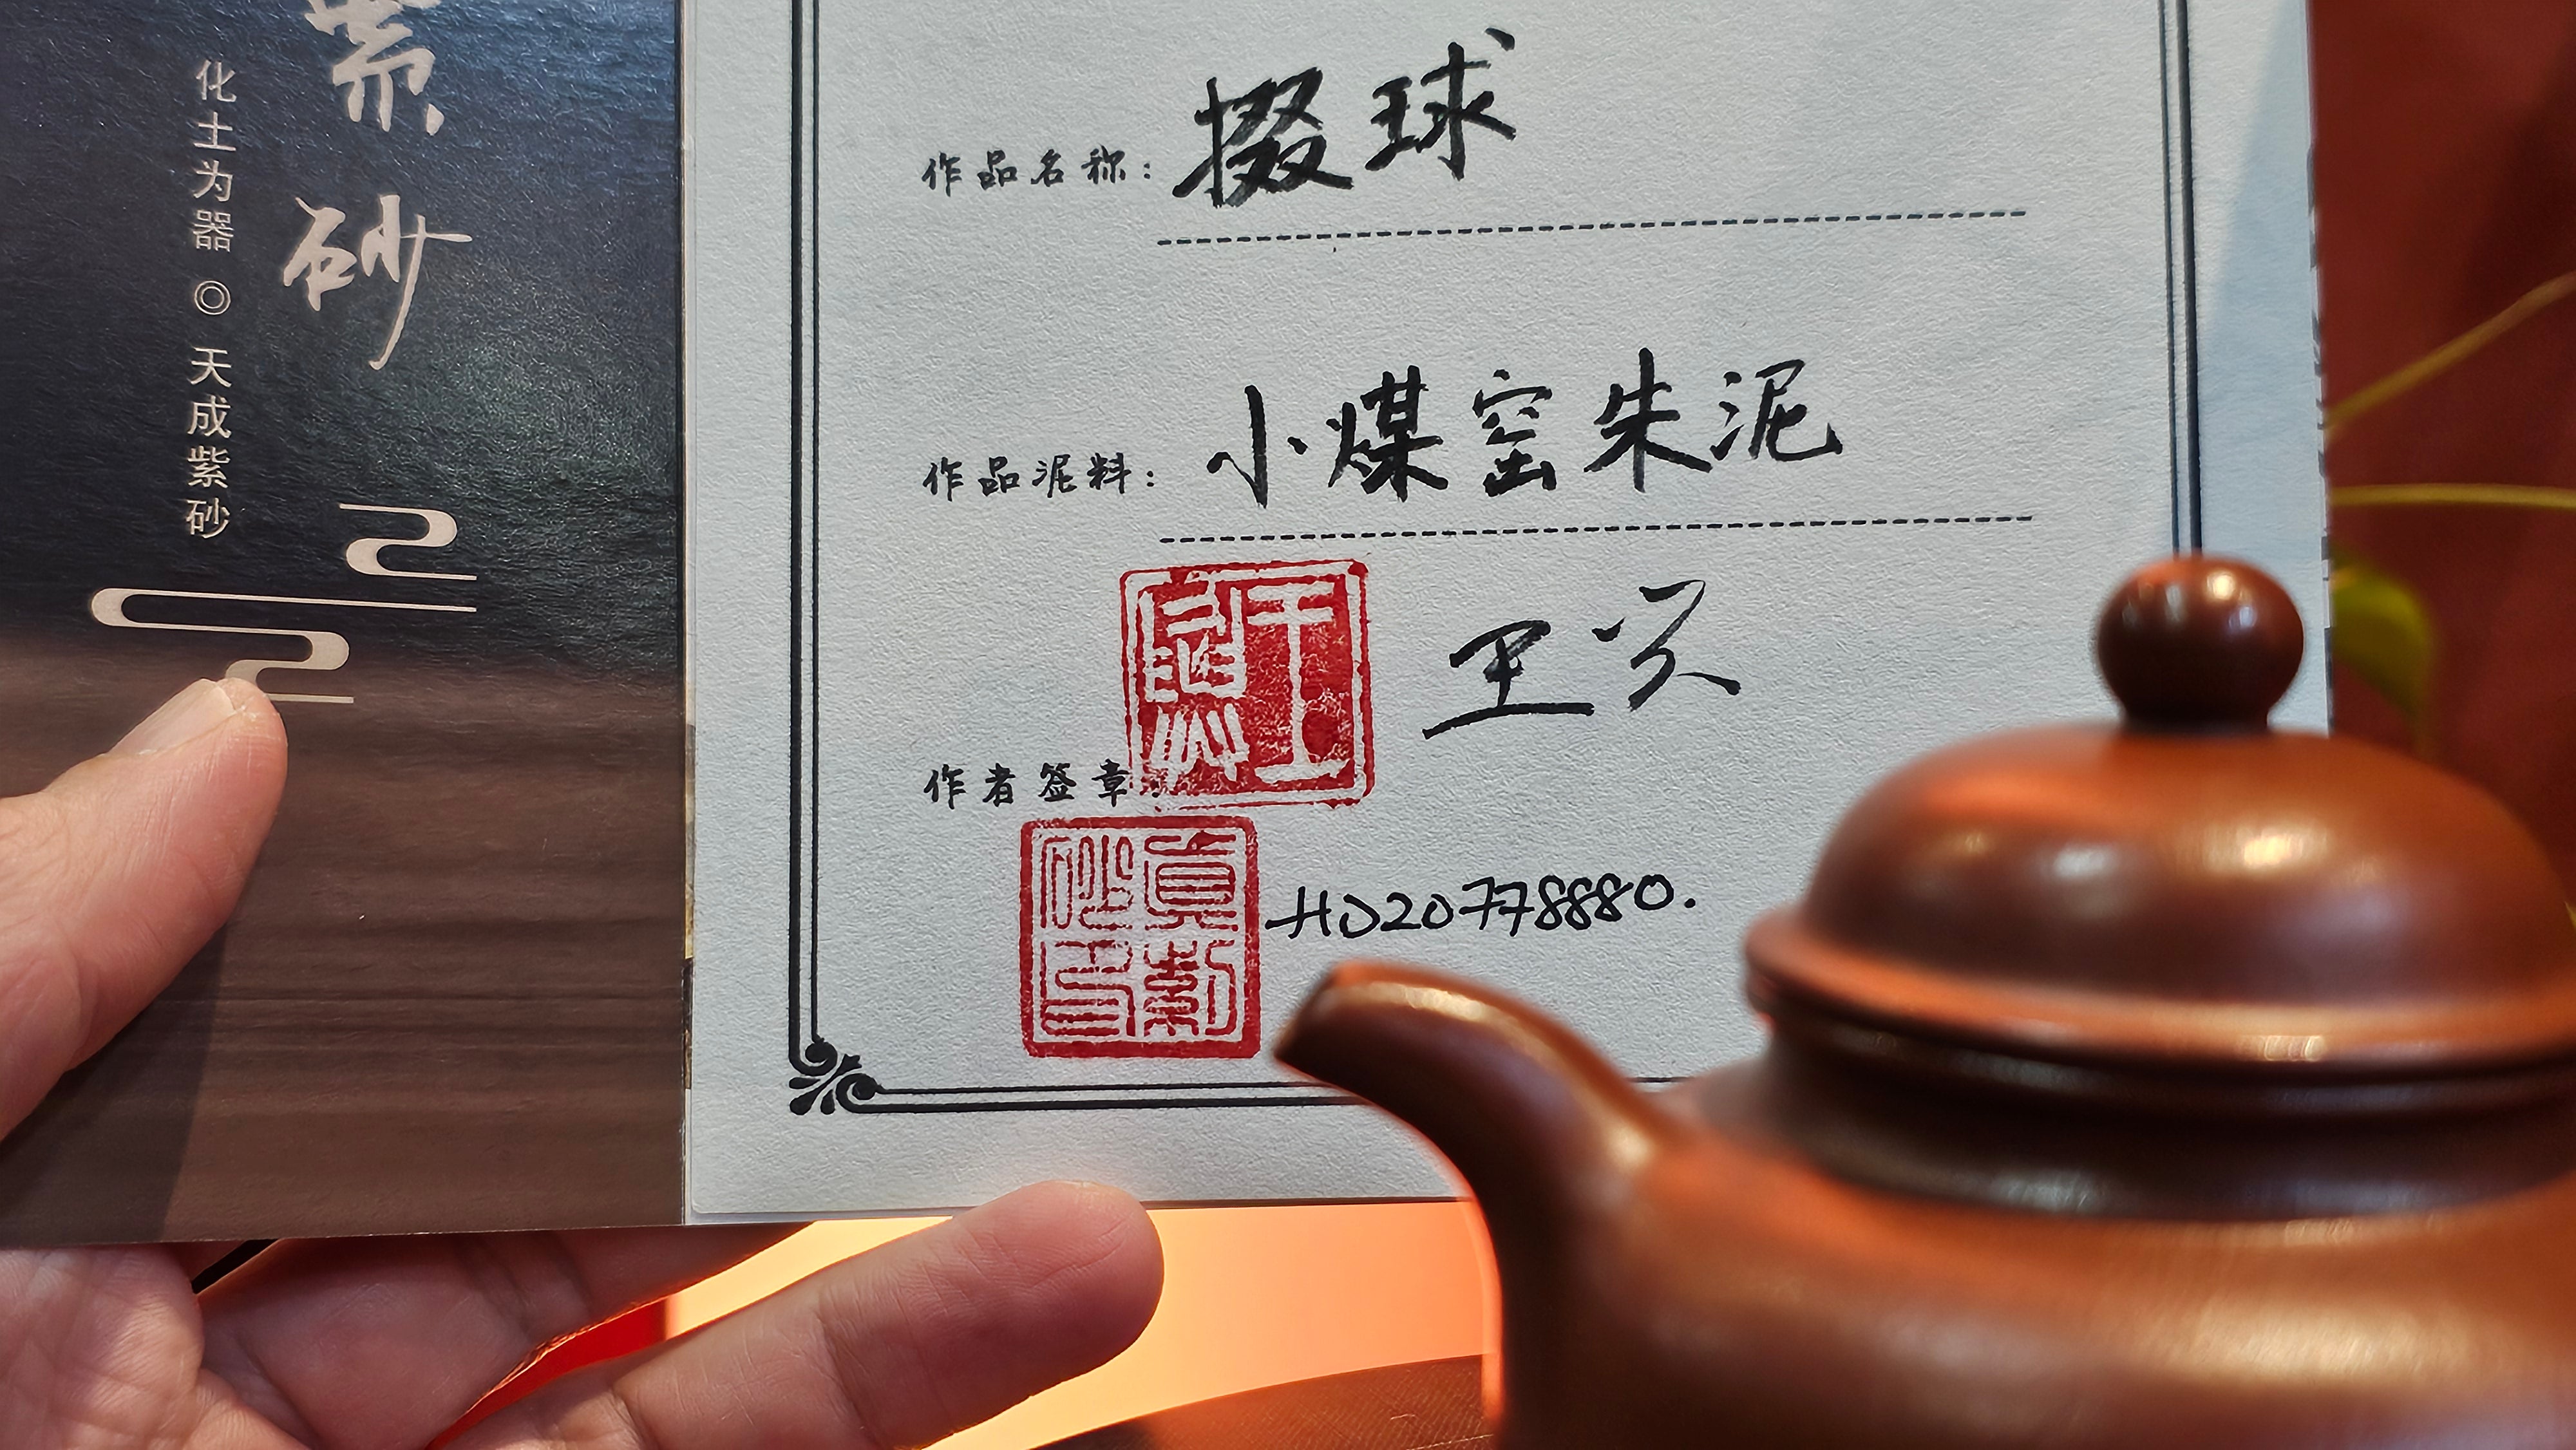 紫砂
化土为器 ◎ 天成紫砂
作品名称：掇球
作品泥料：小煤窑朱泥
王兴
作者签章：
HD20778880.